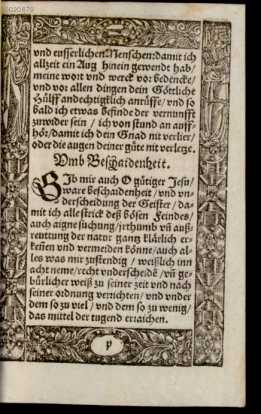 020879
vnd eusserlichen Menschen: damit ich
allzeit ein Aug hinein gewendt hab/
meine wort vnd werck vor bedencke/
vnd vor allen dingen dein Göttliche
Hülff andechtigklich anrüffe/ vnd so
bald ich etwas befinde der vernunfft
zuwider sein / ich von stund an auff-
hör/ damit ich dein Gnad nit verlier/
oder die augen deiner güte nit verletze.
Vmb Beschaidenheit.
GIb mir auch O gütiger Jesu/
ware beschaidenheit / vnd vn-
derscheidung der Geister / da-
mit ich alle strick deß bösen Feindes/
auch aigne suchung/ jrthumb vñ auß-
reuttung der natur gantz klärlich er-
keñen vnd vermeiden könne/ auch al-
les was mir zustendig / weißlich inn
acht neme/ recht vnderscheidẽ / vñ ge-
bürlicher weiß zu seiner zeit vnd nach
seiner ordnung verichten/ vnd vnder
dem so zu viel / vnd dem so zu wenig/
das mittel der tugend erraichen.
p